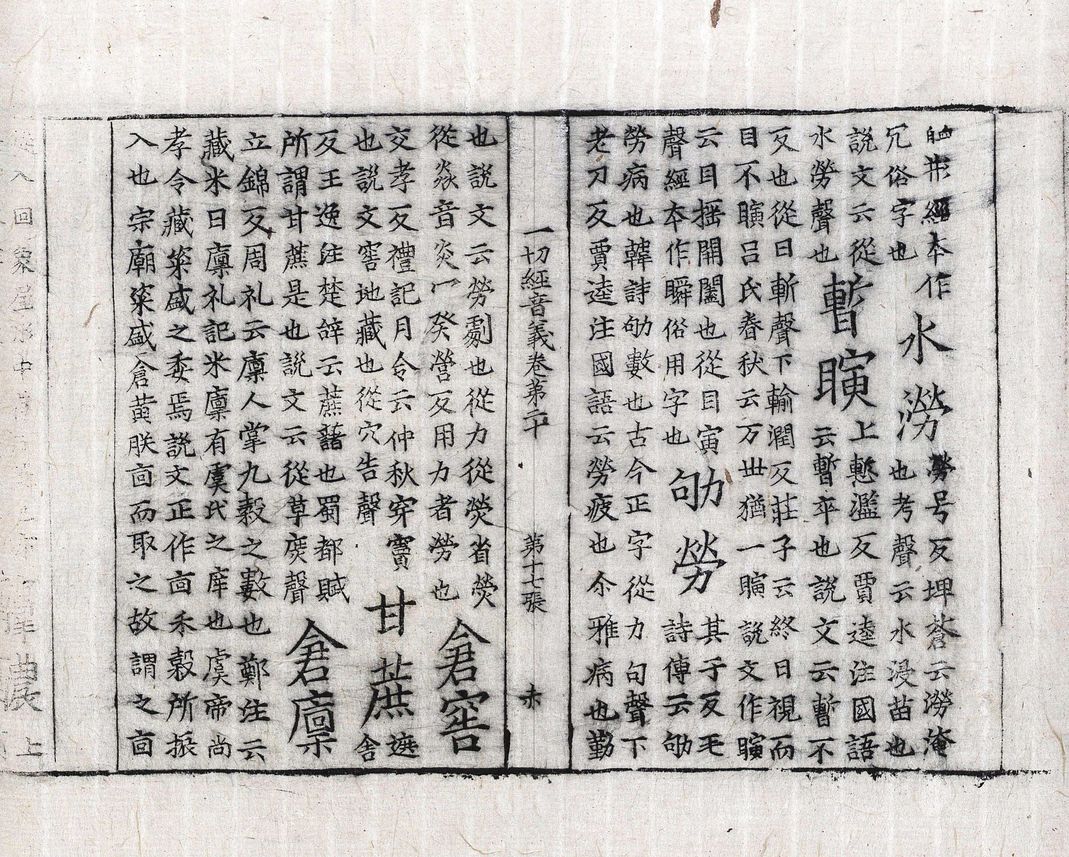 經本作
冗俗字也
水潦
勞号反埤蒼云潦淹
也考聲云水浸苗也
說文云從
水勞聲也
暫瞚
上慙濫反賈逵注國語
云暫卒也說文云暫不
反也從日斬聲下輸潤反莊子云終日視而
目不瞚呂氏春秋云万丗猶一瞚說文作瞚
云目摇開闔也從目寅
聲經本作瞬俗用字也
劬勞
其于反毛
詩傳云劬
勞病也韓詩劬數也古今正字從力句聲下
老刀反賈逵注國語云勞疲也尒雅病也勤
一切經音義卷第二十 第十七張 赤
也說文云勞劇也從力從熒省熒
從焱音炎冖癸營反用力者勞也
倉窖
交孝反禮記月令云仲秋穿竇
也說文窖地藏也從穴告聲
甘蔗
遮
舍
反王逸注楚辝云蔗藷也蜀都賦
所謂甘蔗是也說文云從草庶聲
倉廩
立錦反周礼云廩人掌九榖之數也鄭注云
藏米曰廩礼記米廩有虞氏之庠也虞帝尚
孝令藏粢盛之委焉說文正作㐭禾榖所振
入也宗廟粢盛倉黃朕㐭而取之故謂之㐭